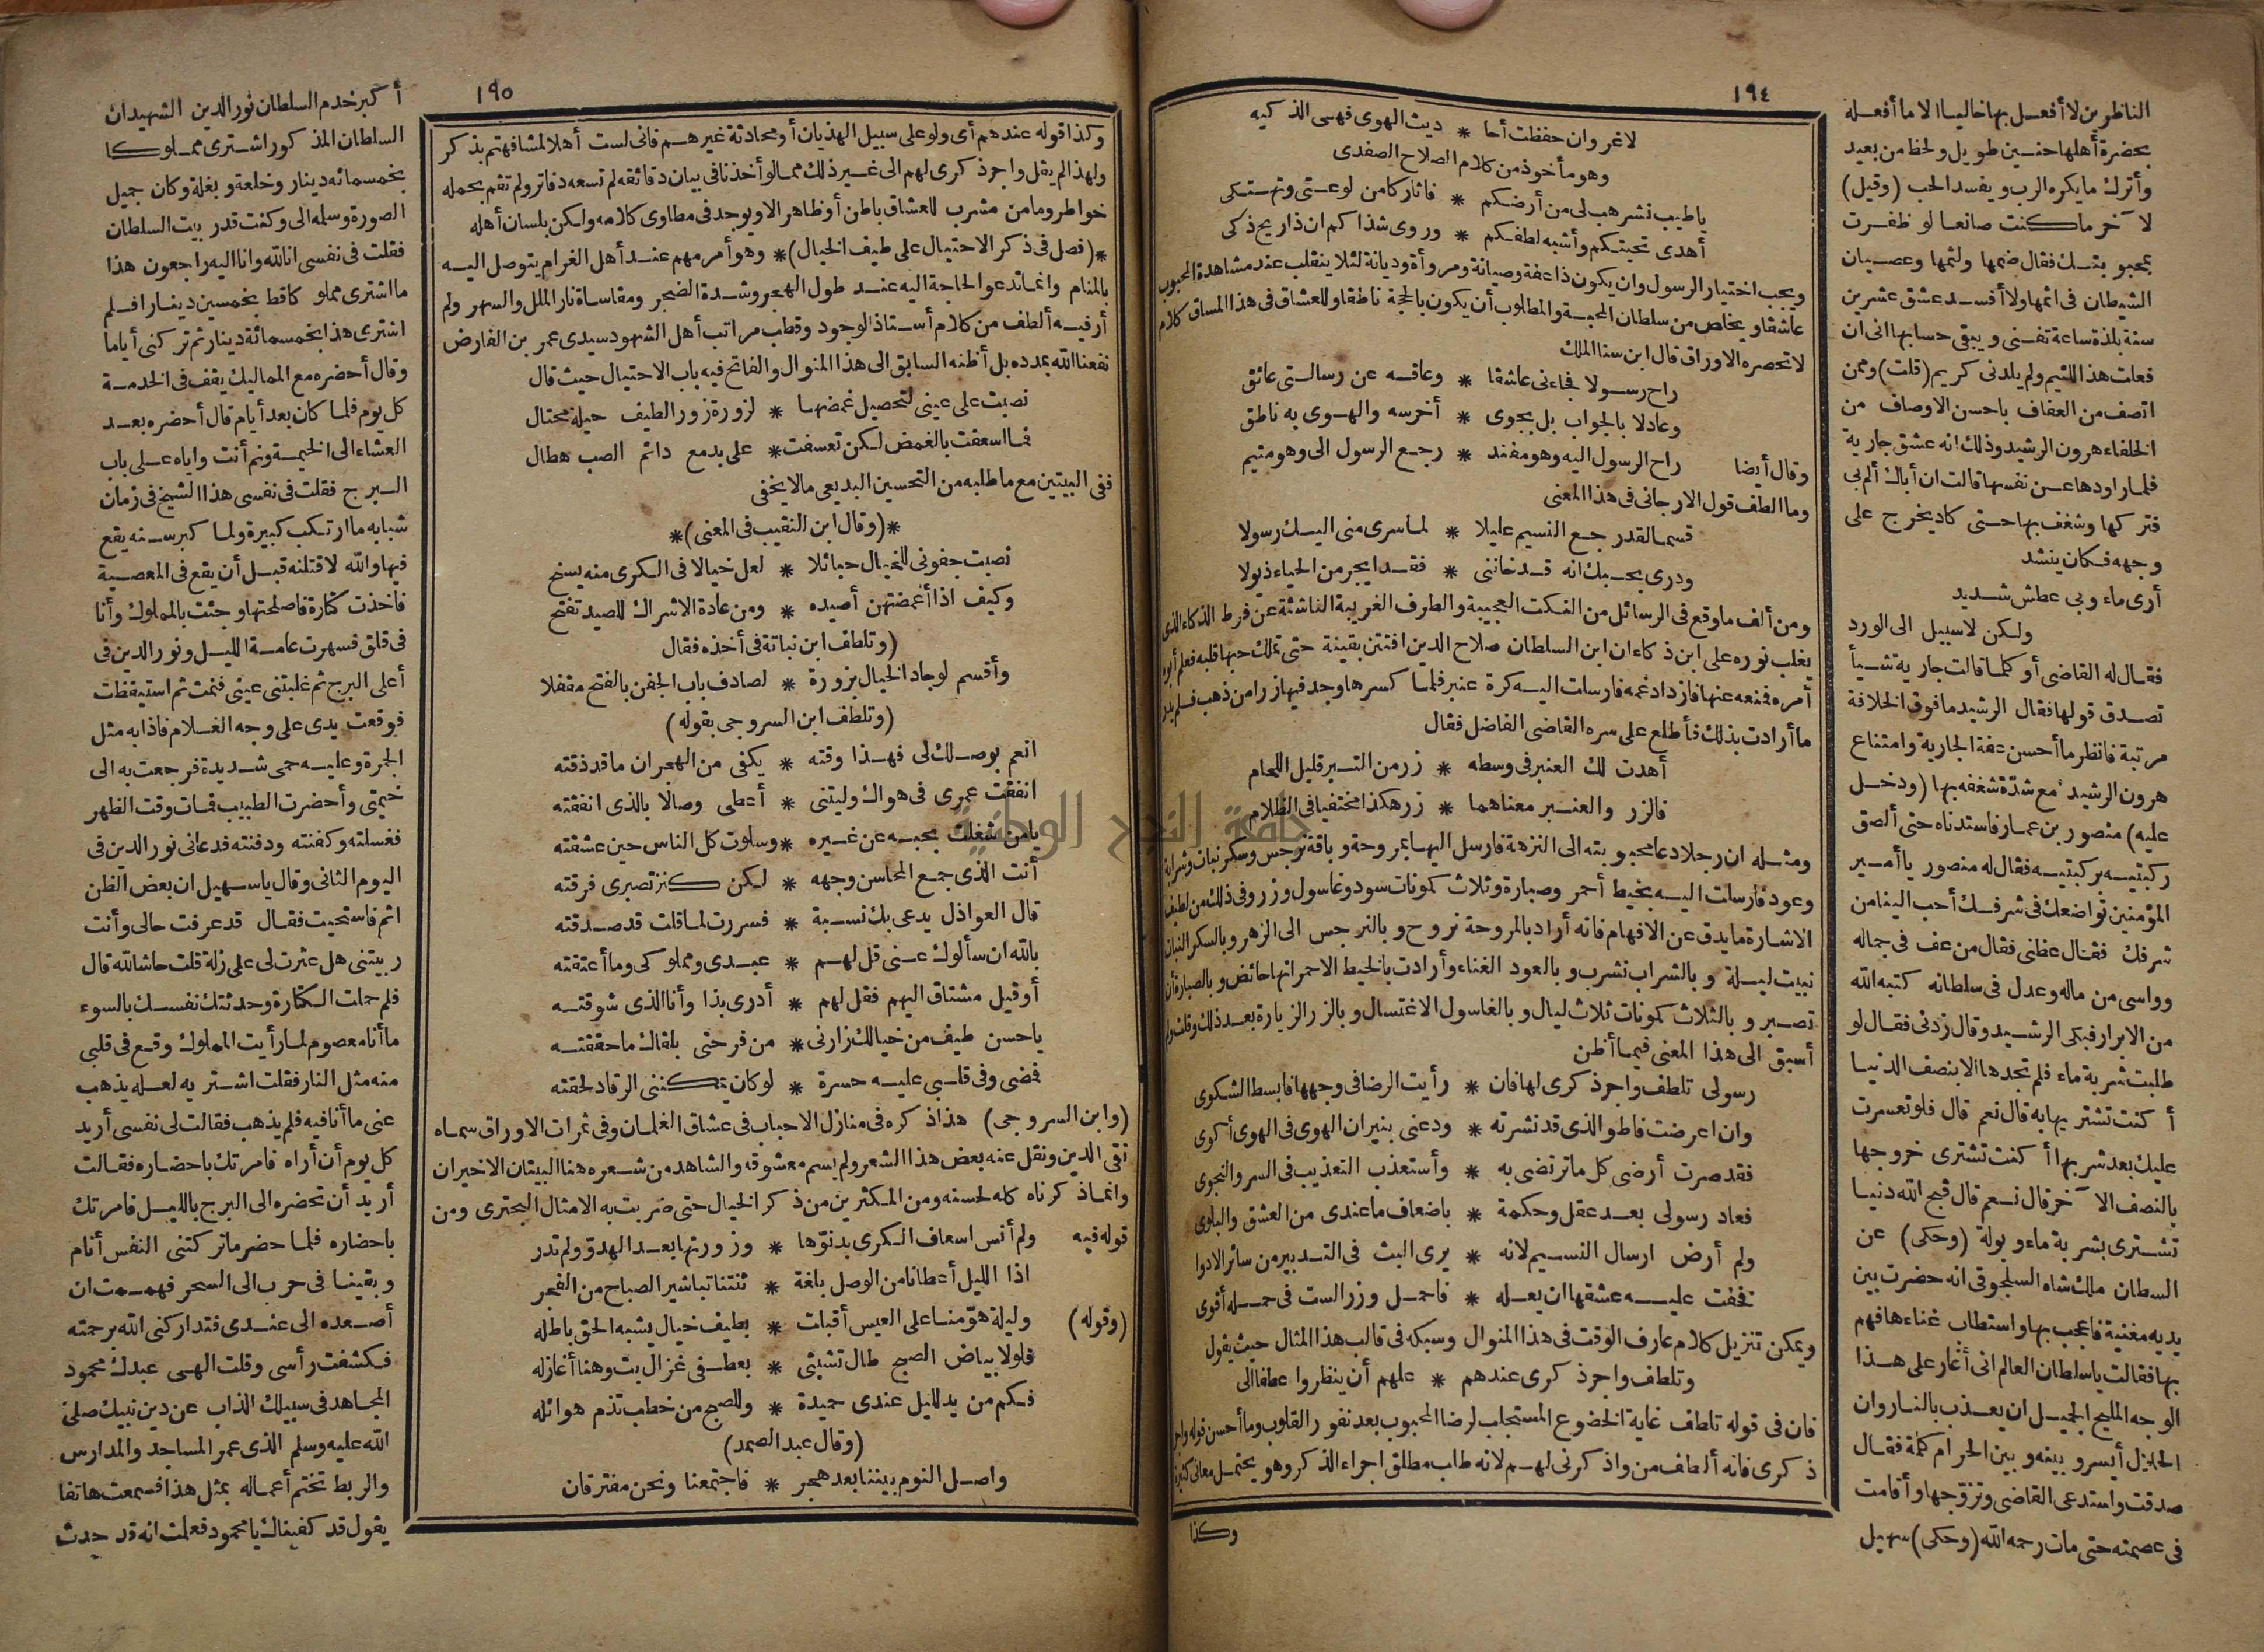 ١٩٤
لاغر وان حفظت أحا * ديث الهوى فهى الذكيه
وهو مأخوذ من كلام الصلاح الصفدى
ياطيب نشر هب لى من أرضكم * فاثار كامن لوعتى وتهتكى
أهدى تحيتكم وأشبه لطفكم * وروى شذاكم ان ذاريح ذكى
ويجب اختيار الرسول وان يكون ذاعفة وصيانة ومروأة وديانة لئلا ينقلب عند مشاهدة المحبوب
عاشقا ويخاص من سلطان المحبة والمطلوب أن يكون بالحجة ناطقا وللعشاق فى هذا المساق كلام
لاتحصره الاوراق قال ابن سنا الملك
راح رسولا فجاءنى عاشقا * وعاقه عن رسالتى عائق
وعاد لا بالجواب بل بجوى * أخرسه والهوى به ناطق
وقال أيضا راح الرسول اليه وهو مفند * رجع الرسول الى وهو متيم
وما الطف قول الارجانى فى هذا المعنى
قسما لقد رجع النسيم عليلا * لما سرى منى اليك رسولا
ودرى بحبك انه قد خاننى * فقد ايجر من الحياء ذيولا
ومن ألطف ماوقع فى الرسائل من النكت العجيبة والطرف الغريبة الناشئة عن فرط الذكاء الذى
يغلب نوره على ابن ذكاء ان ابن السلطان صلاح الدين افتتن بقينة حتى تملك حبها قلبه فعلم أبوه
أمره فمنعه عنها فازداد غمه فارسلت اليه كرة عنبر فلما كسرها وجد فيها زرا من ذهب فلم يدر
ما أرادت بذلك فأطلع على سره القاضى الفاضل فقال
أهدت لك العنبر فى وسطه * زر من التبر قليل اللحام
فالزر والعنبر معناهما * زرهكذا مختفيا فى الظلام
ومثله ان رجلا دعا محبوبته الى النزهة فارسل اليها بمروحة وباقة نرجس وسكر نبات وشرابة
وعود فارسلت اليه بخيط أحمر وصبارة وثلاث كمونات سود وغاسول وزر وفى ذلك من لطيف
الاشارة مايدق عن الافهام فانه أراد بالمروحة نروح وبالنرجس الى الزهر وبالسكر النبات
نبيت ليلة وبالشراب نشرب وبالعود الغناء وأرادت بالخيط الاحمر انها حائض وبالصبارة أن
تصبر وبالثلاث كمونات ثلاث ليال وبالغاسول الاغتسال وبالزر الزيارة بعد ذلك وقلت ولم
أسبق الى هذا المعنى فيما أظن
رسولى تلطف واجر ذكرى لها فان * رأيت الرضا فى وجهها فابسط الشكوى
وان اعرضت فاطو الذى قد نشرته * ودعنى بنيران الهوى فى الهوى أكوى
فقد صرت أرضى كل ماترتضى به * وأستعذب التعذيب فى السر والنجوى
فعاد رسولى بعد عقل وحكمة * باضعاف ماعندى من العشق والبلوى
ولم أرض ارسال النسيم لانه * يرى البث فى التدبير من سائر الادوا
فخفت عليه عشقها ان يعله * فاحمل وزرا لست فى حمله أقوى
ويمكن تنزيل كلام عارف الوقت فى هذا المنوال وسبكه فى قالب هذا المثال حيث يقول
وتلطف واجر ذكرى عندهم * علهم أن ينظروا عطفا الى
فان فى قوله تلطف غاية الخضوع المستجلب لرضا المحبوب بعد نفور القلوب وما أحسن قوله واجر
ذكرى فانه ألطف من واذكرنى لهم لانه طالب مطلق اجراء الذكر وهو يحتمل معانى كثيرة
وكذا
الناظر من لا أفعل بها خاليا الا ما أفعله
بحضرة أهلها حنين طويل ولحظ من بعيد
وأترك مايكره الرب ويفسد الحب (وقيل)
لآخر ماكنت صانعا لو ظفرت
بمحبوبتك فقال ضمها ولثمها وعصيان
الشيطان فى اثمها ولا أفسد عشق عشرين
سنة بلذة ساعة تفنى ويبقى حسابها انى ان
فعلت هذا للئيم ولم يلدنى كريم (قلت) وممن
اتصف من العفاف باحسن الاوصاف من
الخلفاء هرون الرشيد وذلك انه عشق جارية
فلما راودها عن نفسها قالت ان أباك ألم بى
فتركها وشغف بها حتى كاد يخرج على
وجهه فكان ينشد
أرى ماء وبى عطش شديد
ولكن لاسبيل الى الورد
فقال له القاضى أوكلما قالت جارية شيأ
تصدق قولها فقال الرشيد مافوق الخلافة
مرتبة فانظر ما أحسن عفة الجارية وامتناع
هرون الرشيد مع شدة شغفه بها (ودخل
عليه) منصور بن عمار فاستدناه حتى ألصق
ركبتيه بركبتيه فقال له منصور يا أمير
المؤمنين تواضعك فى شرفك أحب الينا من
شرفك فقال عظنى فقال من عف فى جماله
وواسى من ماله وعدل فى سلطانه كتبه الله
من الابرار فبكى الرشيد وقال زدنى فقال لو
طلبت شربة ماء فلم تجدها الا بنصف الدنيا
أكنت تشتريها به قال نعم قال فلو تعسرت
عليك بعد شربها أكنت تشترى خروجها
بالنصف الآخر قال نعم قال قبح الله دنيا
تشترى بشربة ماء وبولة (وحكى) عن
السلطان ملك شاه السلجوقى انه حضرت بين
يديه مغنية فاعجب بها واستطاب غناءها فهم
بها فقالت ياسلطان العالم انى أغار على هذا
الوجه المليح الجميل ان يعذب بالنار وان
الحلال أيسر وبينه وبين الحرام كلمة فقال
صدقت واستدعى القاضى وتزوجها وأقامت
فى عصمته حتى مات رحمه الله (وحكى) سهيل
١٩٥
وكذا قوله عندهم أى ولو على سبيل الهذيان أو محادثة غيرهم فانى لست أهلا لمشافهتم بذكر
ولهذا لم يقل واجر ذكرى لهم الى غير ذلك مما لو أخذنا فى بيان دقائقه لم تسعه دفاتر ولم تقم بحمله
خواطر ومامن مشرب للعشاق باطن أو ظاهر الا ويوجد فى مطاوى كلامه ولكن بلسان أهله
*(فصل فى ذكر الاحتيال على طيف الخيال)* وهو أمر مهم عند أهل الغرام يتوصل اليه
بالمنام وانما تدعو الحاجة اليه عند طول الهجر وشدة الضجر ومقاساة نار الملل والسهر ولم
أر فيه ألطف من كلام أستاذ الوجود وقطب مراتب أهل الشهود سيدى عمر بن الفارض
نفعنا الله بمدده بل أظنه السابق الى هذا المنوال والفاتح فيه باب الاحتيال حيث قال
نصبت على عينى لتحصيل غمضها * لزورة زور الطيف حيلة محتال
فما اسعفت بالغمض لكن تعسفت * على بدمع دائم الصب هطال
ففى البيتين مع ماطلبه من التحسين البديعى مالا يخفى
*(وقال ابن النقيب فى المعنى)*
نصبت جفونى للخيال حبائلا * لعل خيالا فى الكرى منه يسنح
وكيف اذا أغمضتهن أصيده * ومن عادة الاشراك للصيد تفتح
(وتلطف ابن نباتة فى أخذه فقال
وأقسم لو جاد الخيال بزورة * لصادف باب الجفن بالفتح مقفلا
(وتلطف ابن السروجى بقوله)
انعم بوصلك لى فهذا وقته * يكفى من الهجران ماقد ذقته
انفقت عمرى فى هواك وليتنى * أعطى وصالا بالذى انفقته
يامن شغلت بحبه عن غيره * وسلوت كل الناس حين عشقته
أنت الذى جمع المحاسن وجهه * لكن كنز تصبرى فرقته
قال العواذل يدعى بك نسبة * فسررت لما قلت قد صدقته
بالله ان سألوك عنى قل لهم * عبدى ومملوكى وما أعتقته
أو قيل مشتاق اليهم فقل لهم * أدرى بذا وأنا الذى شوقته
ياحسن طيف من خيالك زارنى * من فرحتى بلقاك ماحققته
فمضى وفى قلبى عليه حسرة * لو كان يمكننى الرقاد لحقته
(وابن السروجى) هذا ذكره فى منازل الاحباب فى عشاق الغلمان وفى ثمرات الاوراق سماه
تقى الدين ونقل عنه بعض هذا الشعر ولم يسم معشوقه والشاهد من شعره هنا البيتان الاخيران
وانما ذكرناه كله لحسنه ومن المكثرين من ذكر الخيال حتى ضربت به الامثال البحترى ومن
قوله فيه ولم أنس اسعاف الكرى بدنوها * وزورتها بعد الهدو ولم تدر
اذا الليل أعطانا من الوصل بلغة * ثنتنا تباشير الصباح من الفجر
(وقوله) وليلة هومنا على العيس أقبلت * بطيف خيال يشبه الحق باطله
فلولا بياض الصبح طال تشبثى * بعطفى غزال بت وهنا أغازله
فكم من يد لليل عندى حميدة * وللصبح من خطب تذم هوائله
(وقال عبد الصمد)
واصل النوم بيننا بعد هجر * فاجتمعنا ونحن مفترقان
أكبر خدم السلطان نور الدين الشهيد ان
السلطان المذكور اشترى مملوكا
بخمسمائه دينار وخلعة وبغلة وكان جميل
الصورة وسلمه الى وكنت قدر بيت السلطان
فقلت فى نفسى انالله وانا اليه راجعون هذا
ما اشترى مملوكا قط بخمسين دينارا فلم
اشترى هذا بخمسمائة دينار ثم تركنى أياما
وقال أحضره مع المماليك يقف فى الخدمة
كل يوم فلما كان بعد أيام قال أحضره بعد
العشاء الى الخيمة ونم أنت واياه على باب
البرج فقلت فى نفسى هذا الشيخ فى زمان
شبابه ما ارتكب كبيرة ولما كبر سنه يقع
فيها والله لاقتلنه قبل أن يقع فى المعصية
فاخذت كتارة فاصلحتها وجئت بالمملوك وأنا
فى قلق فسهرت عامة الليل ونور الدين فى
أعلى البرج ثم غلبتنى عينى فنمت ثم استيقظت
فوقعت يدى على وجه الغلام فاذا به مثل
الجمرة وعليه حمى شديدة فرجعت به الى
خيمتى وأحضرت الطبيب فمات وقت الظهر
فغسلته وكفنته ودفنته فدعانى نور الدين فى
اليوم الثانى وقال ياسهيل ان بعض الظن
اثم فاستحيت فقال قد عرفت حالى وأنت
ربيتنى هل عثرت لى على زلة قلت حاشالله قال
فلم حملت الكتارة وحدثتك نفسك بالسوء
ما أنا معصوم لما رأيت المملوك وقع فى قلبى
منه مثل النار فقلت اشتريه لعله يذهب
عنى ما أنا فيه فلم يذهب فقالت لى نفسى أريد
كل يوم أن أراه فامرتك باحضاره فقالت
أريد أن تحضره الى البرج بالليل فامرتك
باحضاره فلما حضر ماتركتنى النفس أنام
وبقينا فى حرب الى السحر فهممت ان
أصعده الى عندى فتداركنى الله برحمته
فكشفت رأسى وقلت الهى عبدك محمود
المجاهد فى سبيلك الذاب عن دين نبيك صلى
الله عليه وسلم الذى عمر المساجد والمدارس
والربط تختم أعماله بمثل هذا فسمعت هاتفا
يقول قد كفيناك يامحمود فعلمت انه قد حدث